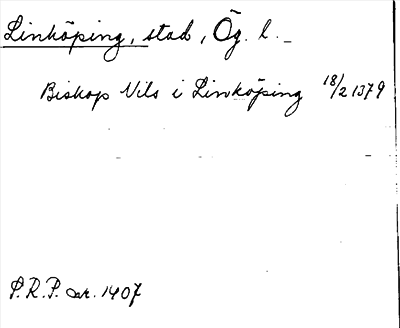 Linköping, stad, Ög. l.
Biskop Nils i Linköping 18/2 1379
P.R.P. nr. 1407